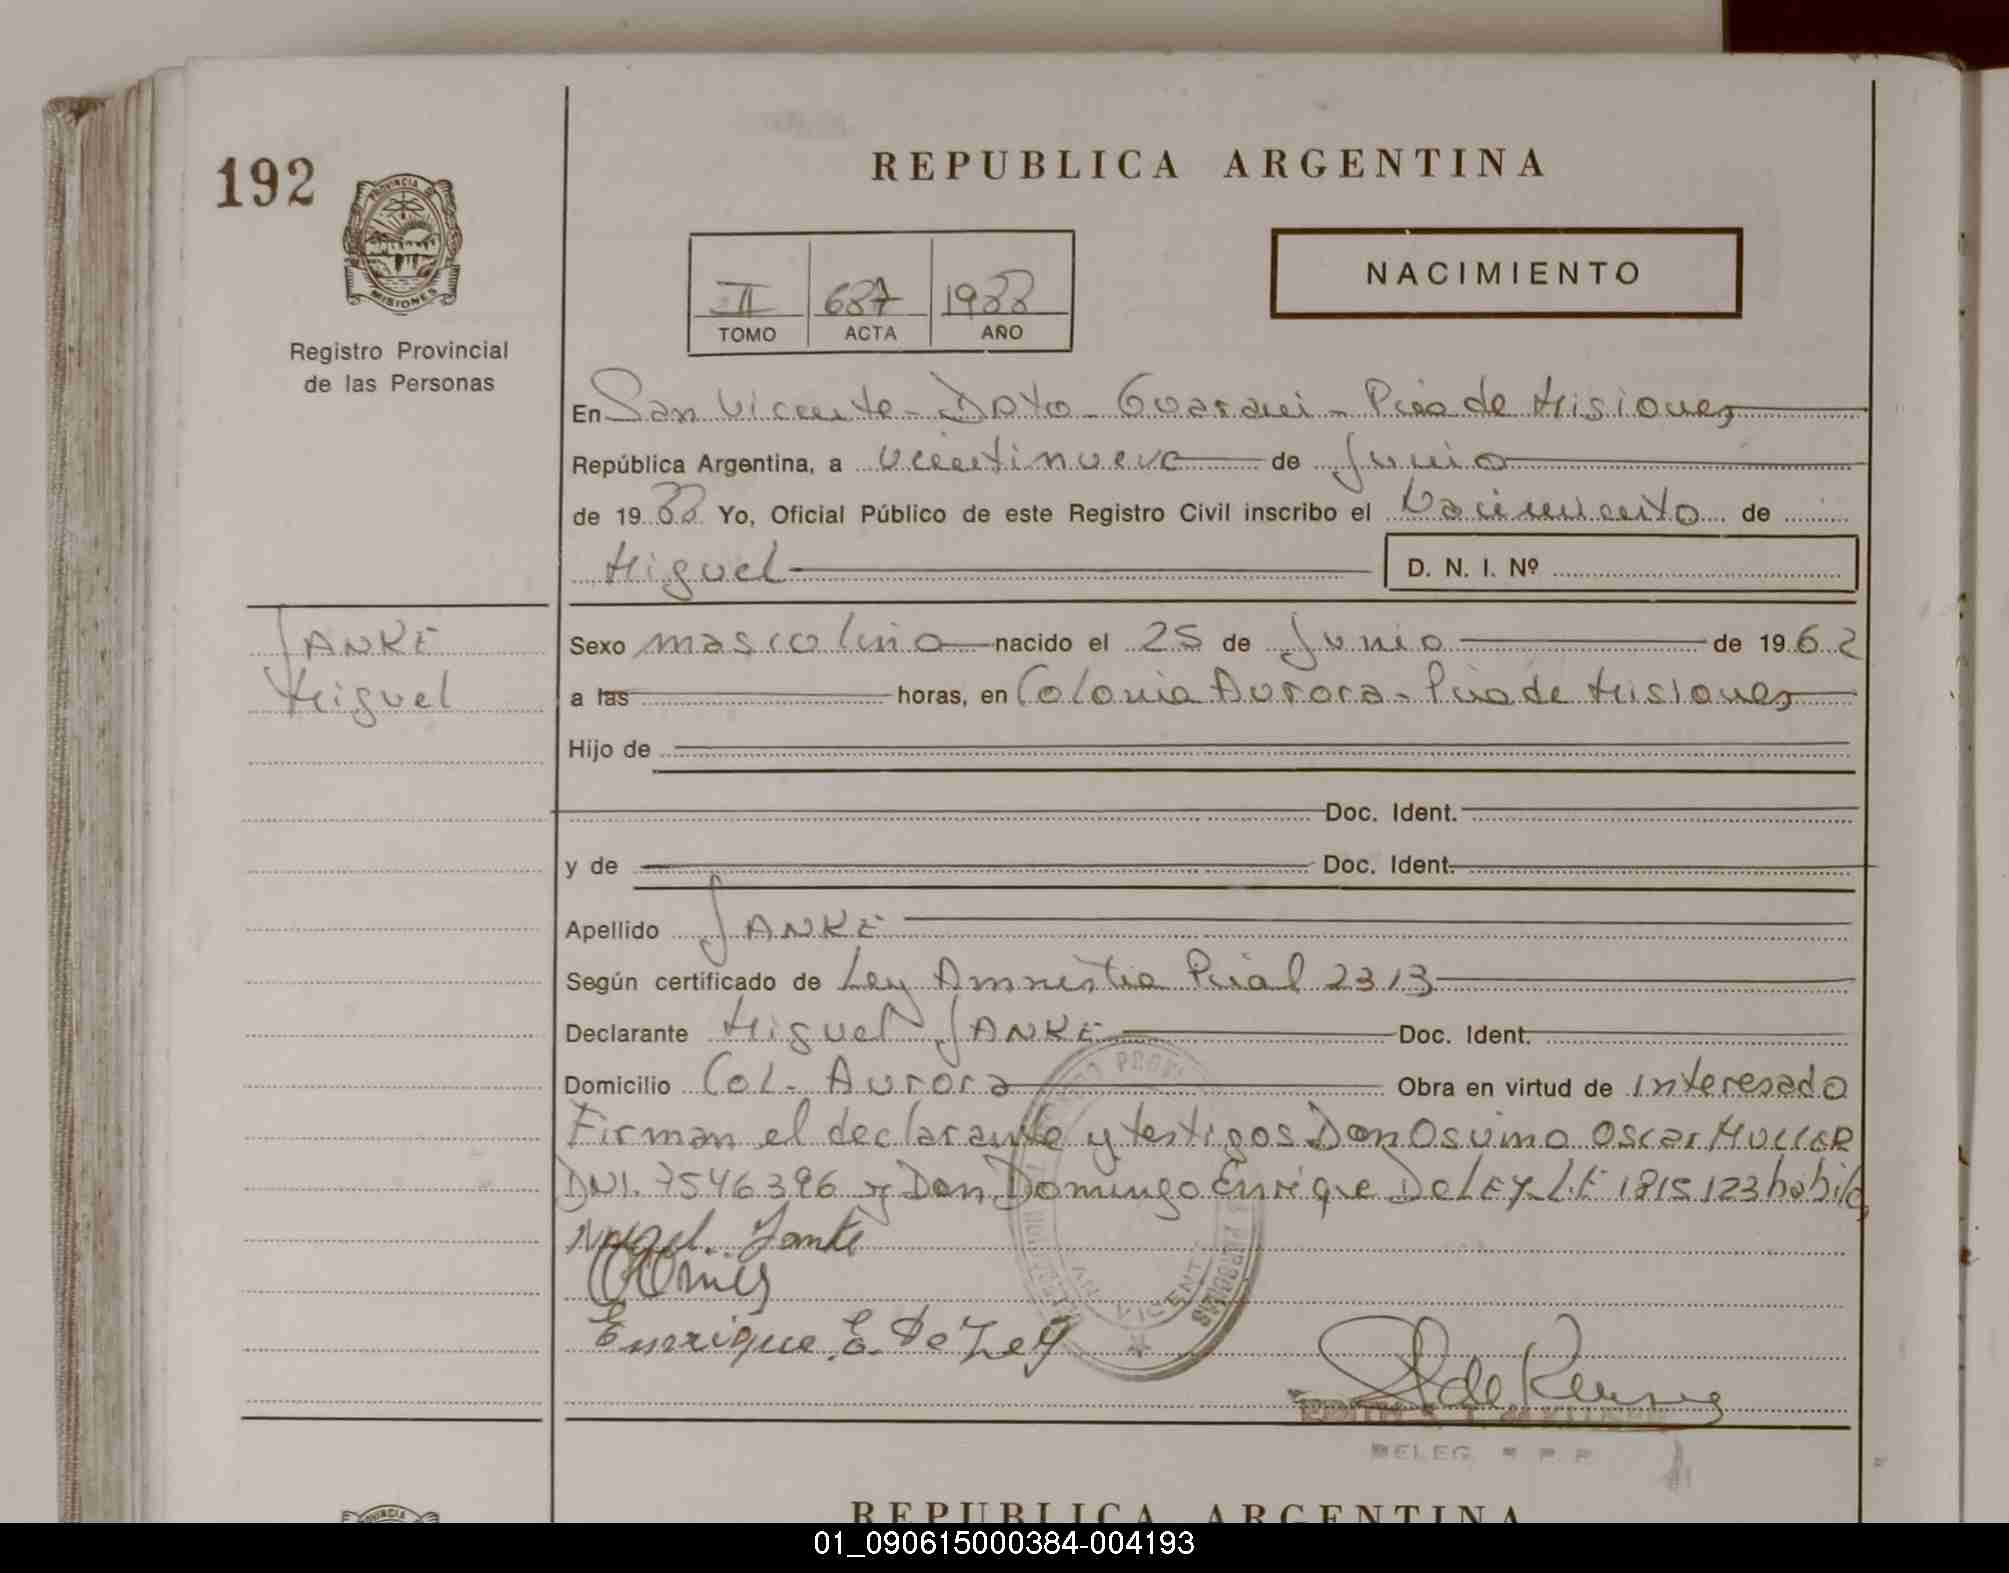 192
REPUBLICA ARGENTINA
PROVINCIA DE
MISIONES
Registro Provincial
de las Personas
II 687 1988
TOMO ACTA AÑO
NACIMIENTO
En San Vicente - Dpto - Guarani - Pcia de Misiones
República Argentina, a veintinueve de Junio
de 1988 Yo, Oficial Público de este Registro Civil inscribo el Nacimiento de
Miguel D. N. I. Nº
JANKE
Miguel
Sexo masculino nacido el 25 de Junio de 1962
a las horas, en Colonia Aurora - Pcia de Misiones
Hijo de
Doc. Ident.
y de Doc. Ident.
Apellido JANKE
Según certificado de Ley Amnistia Pcial 2313
Declarante Miguel JANKE Doc. Ident.
Domicilio Col. Aurora Obra en virtud de interesado
Firman el declarante y testigos Don Osvino Oscar MULLER
DNI. 7546396 y Don Domingo Enrique De LEY L.E 1815123 habil
Migel. Janke
Enrique E. De Ley
VICENT
DELEG. R. P. P.
PROVINCIA
REPUBLICA ARGENTINA
01_090615000384-004193